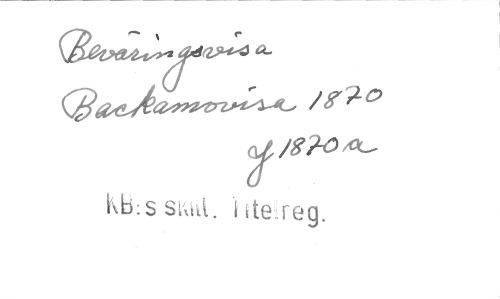 Beväringsvisa
Backamovisa 1870
Y 1870 a
KB:s skill. Titelreg.